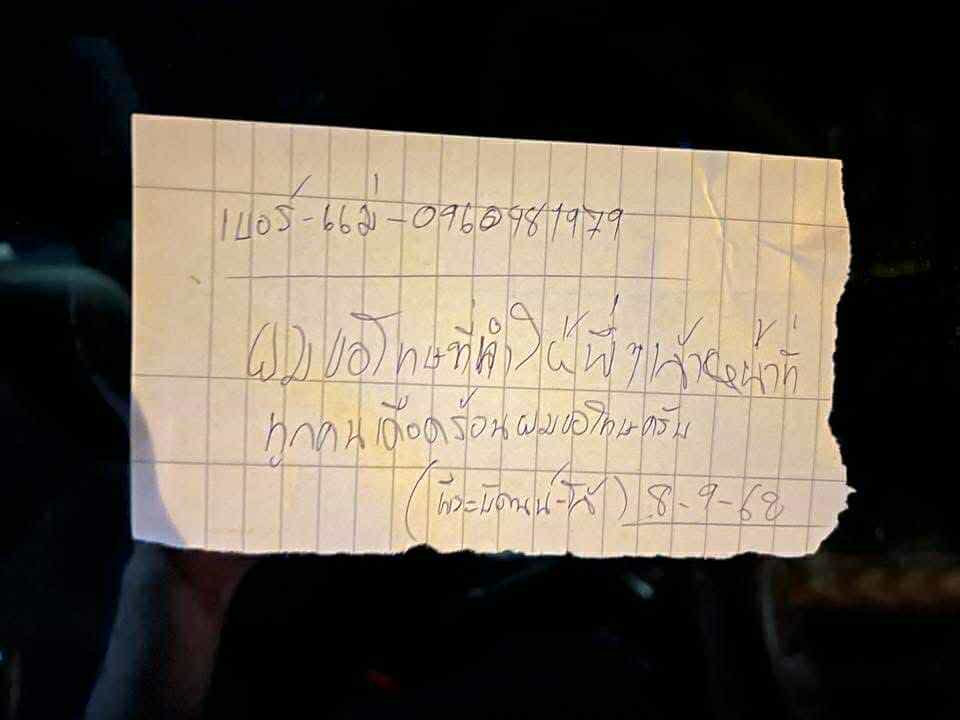 เบอร์-แม่-0960981979
ผมขอโทษที่ทำให้พี่ๆเจ้าหน้าที่
ทุกคนเดือดร้อนผมขอโทษครับ
8-9-68